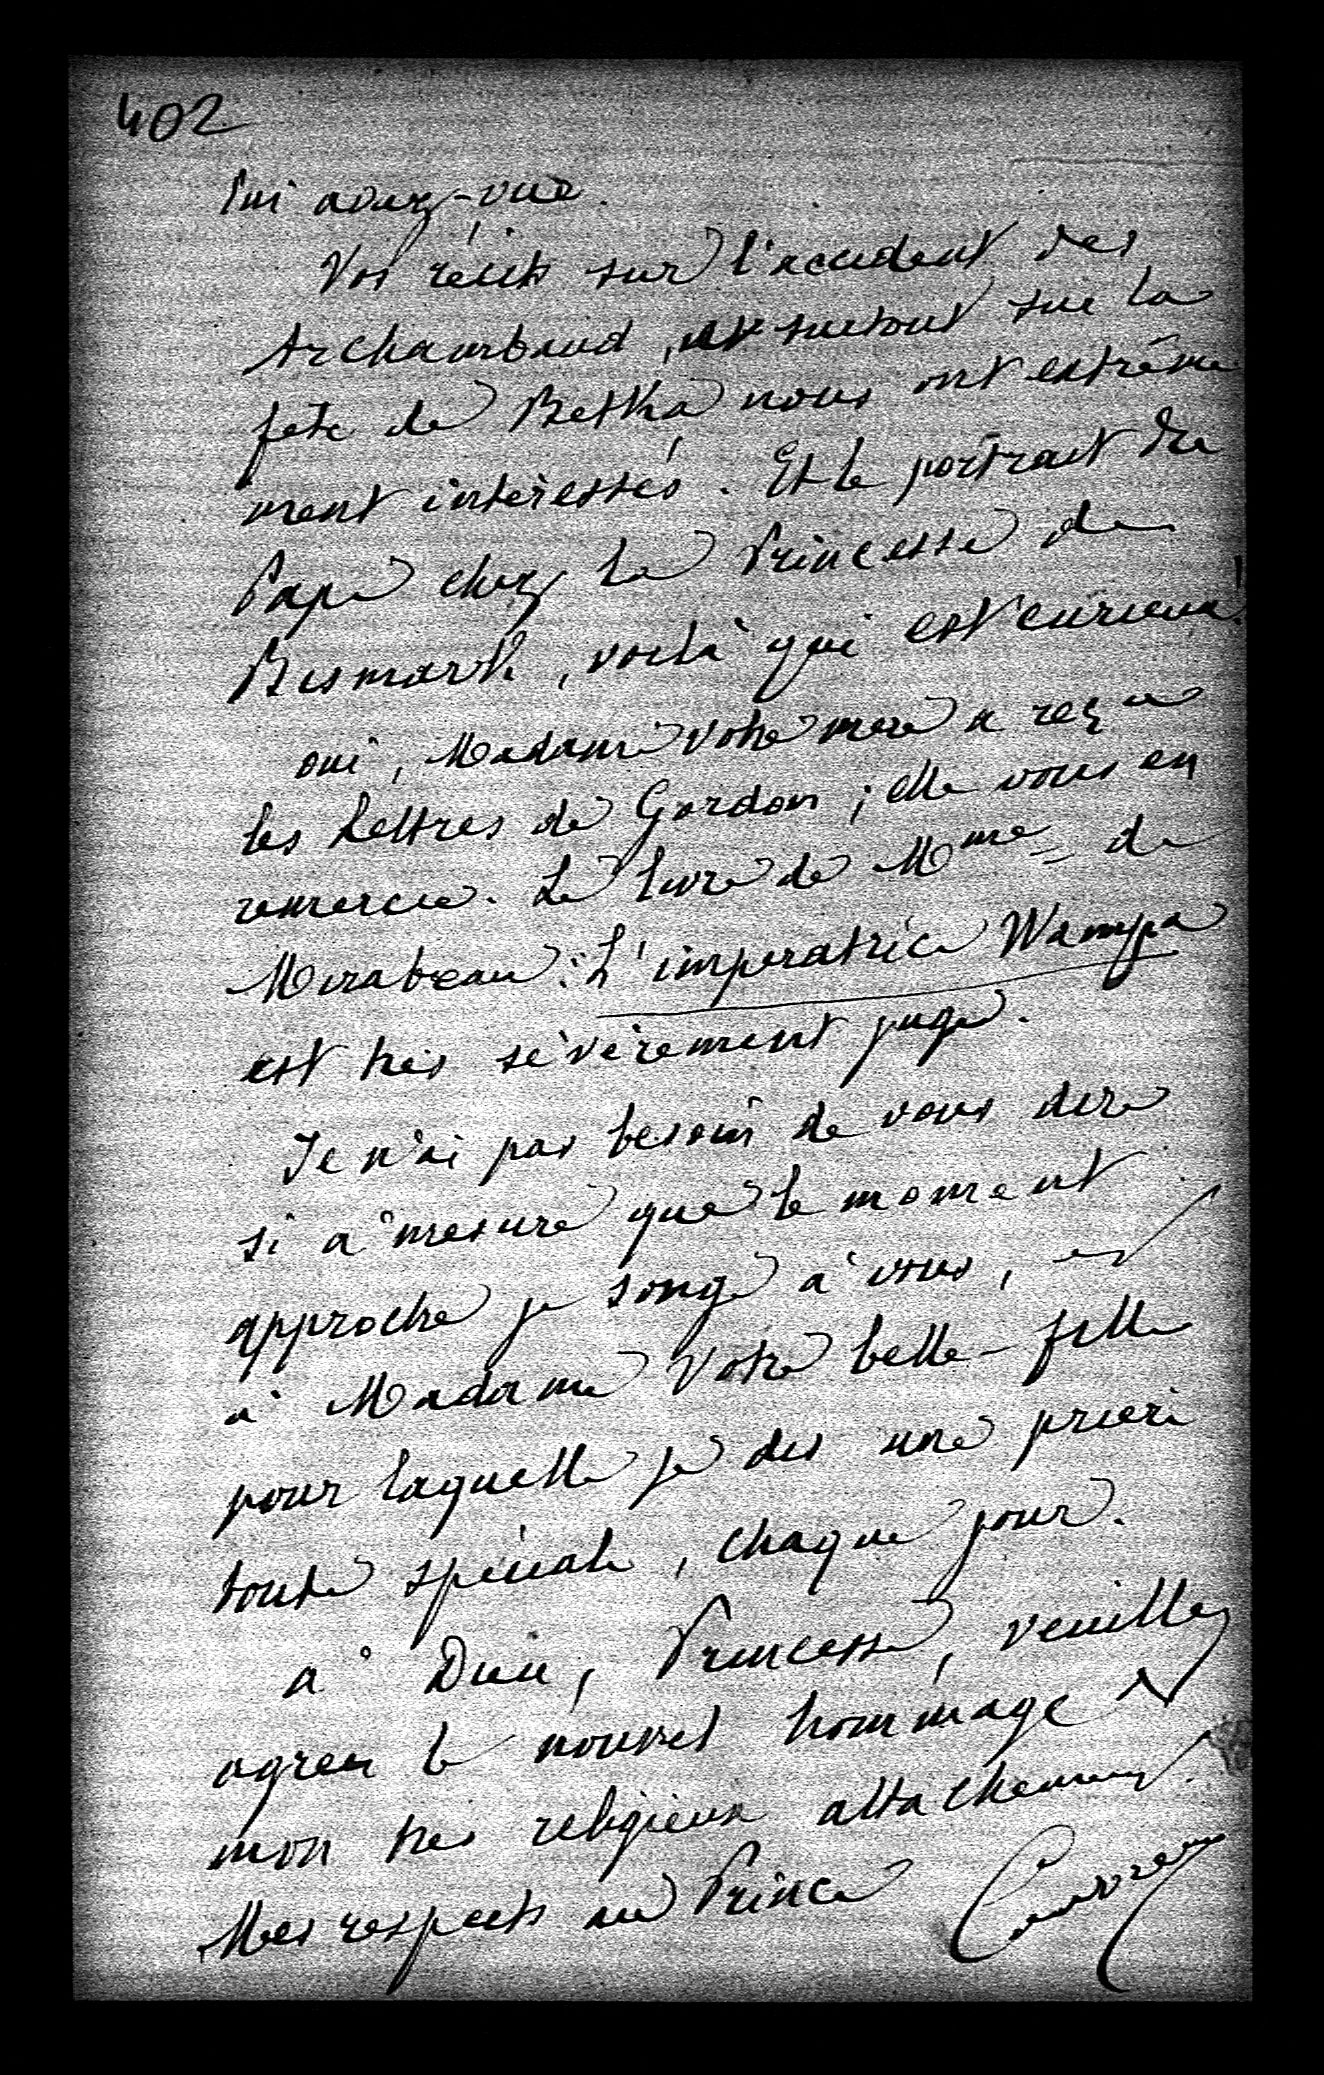 402
lui avez-vue.
Vos récits sur l'accident des
Archambaud, et surtout sur la
fête de Betka nous ont extrême
ment intéressés. Et le portrait du
Pape chez la Princesse de
Bismark, voilà qui est curieux!
oui, Madame Votre mère a reçu
les Lettres de Gordon ; elle vous en
remercie. Le livre de Mme de
Mirabeau: L'impératrice Wampa
est très sévèrement jugé.
Je n'ai pas besoin de vous dire
si à mesure que le moment
approche je songe à vous, et
à Madame Votre belle-fille
pour laquelle je dis une prière
toute spéciale, chaque jour.
à Dieu, Princesse, veuillez
agréer le nouvel hommage de
mon très religieux attachement.
Mes respects au Prince